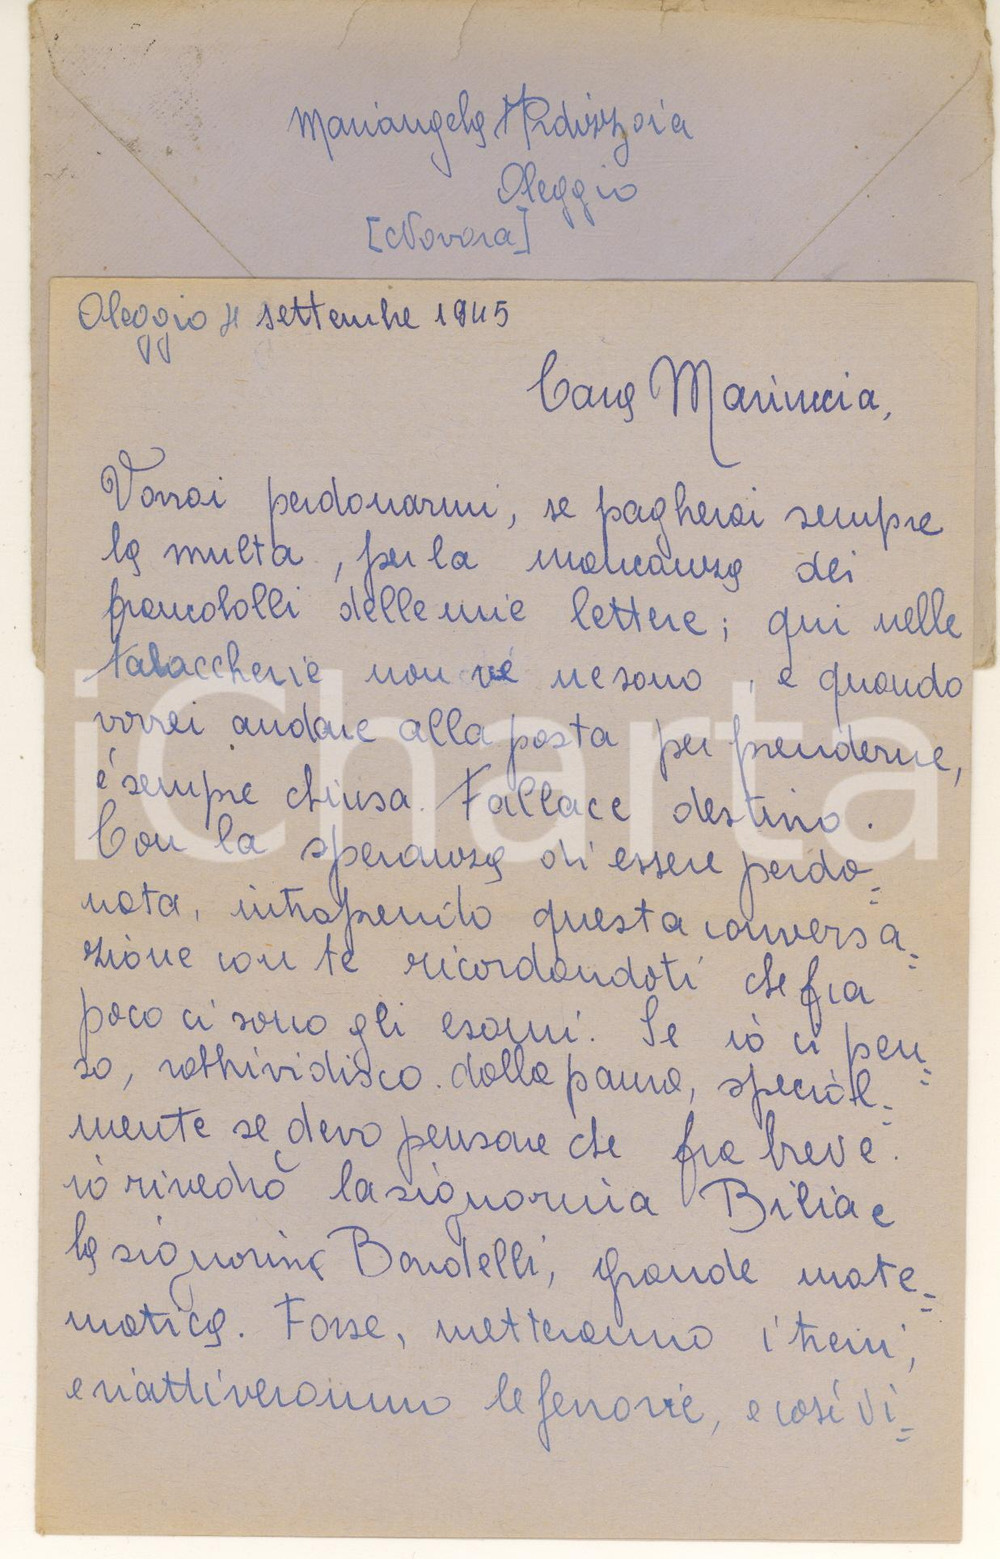 Mariangela Ardizzoia
Oleggio
[Novara]
Oleggio 4 settembre 1945
Cara Mariuccia,
Vorrai perdonarmi, se pagherai sempre
la multa, per la mancanza dei
francobolli delle mie lettere; qui nelle
tabaccherie non ve ne sono, e quando
vorrei andare alla posta per prenderne,
è sempre chiusa. Fallace destino.
Con la speranza di essere perdo=
nata, intraprendo questa conversa=
zione con te ricordandoti che fra
poco ci sono gli esami. Se io ci pen=
so, rabbrividisco dalla paura, special=
mente se devo pensare che fra breve
io rivedrò la signorina Bilia e
la signorina Bardelli, grande mate=
matica. Forse, metteranno i treni,
e riattiveranno le ferrovie, e così vi=
iCharta